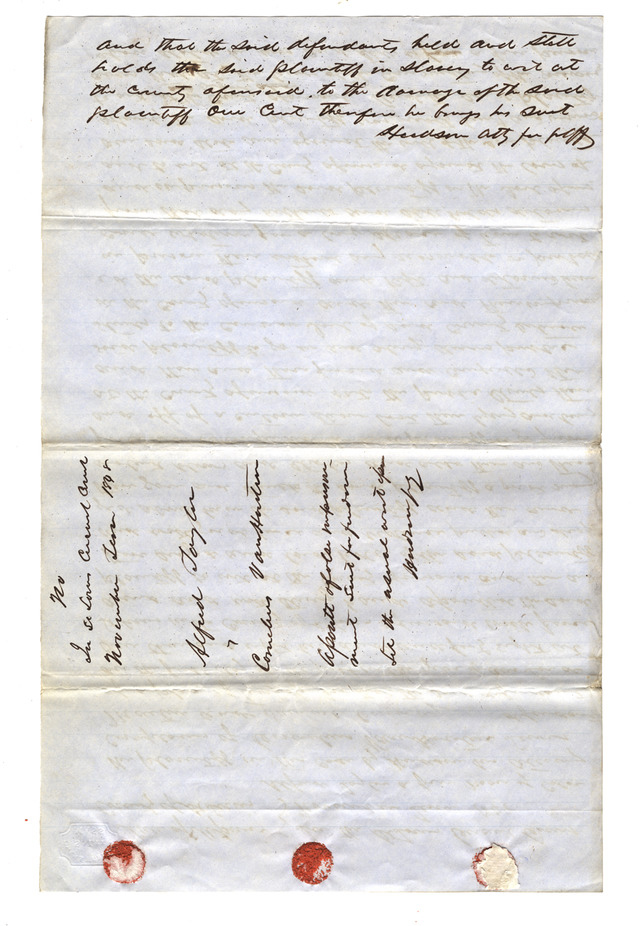 and that the said defendants held and still
holds the said plaintiff in slavery to wit at
the County aforesaid. to the damage of the said
plaintiff One Cent therefore he brings his suit
Hudson atty for plff
No
In St Louis Circuit Court
November Term
Alfred Taylor
v
Cornelius Vanhouten
assault & false imprison-
ment Suit for freedom
Let the usual writ
Hudson